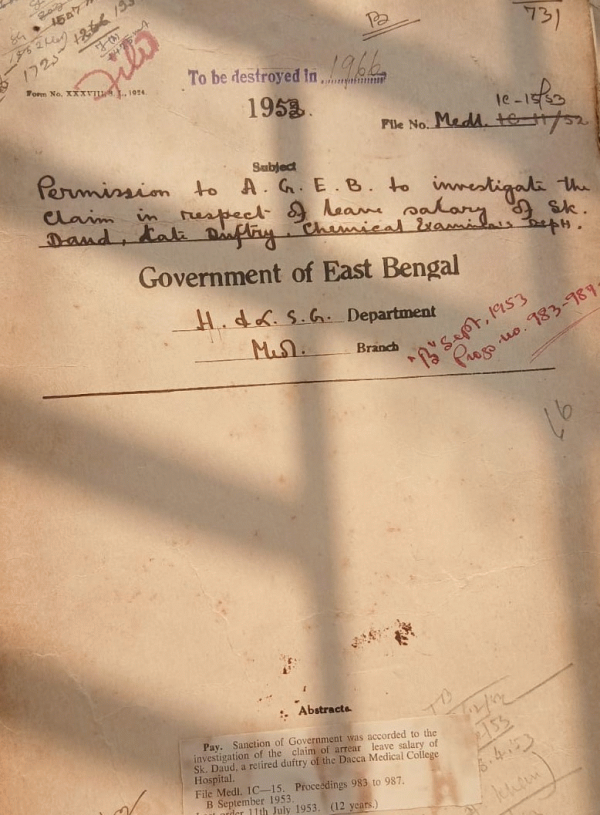 B
731
To be destroyed in 1966
Form No. XXXVIII
1953.
1C-15/53
File No. Medl. 1C-11/52
Subject
Permission to A. G. E. B. to investigate the
claim in respect of leave salary of Sk.
Daud, Late Duftry, Chemical Examiner's Deptt.
Government of East Bengal
H. & L. S. G. Department
Medl. Branch
"B" Sept, 1953
Progs. no. 983-987
Abstracts.
Pay. Sanction of Government was accorded to the
investigation of the claim of arrear leave salary of
Sk. Daud, a retired duftry of the Dacca Medical College
Hospital.
File Medl. 1C—15. Proceedings 983 to 987.
B September 1953.
order 11th July 1953. (12 years.)